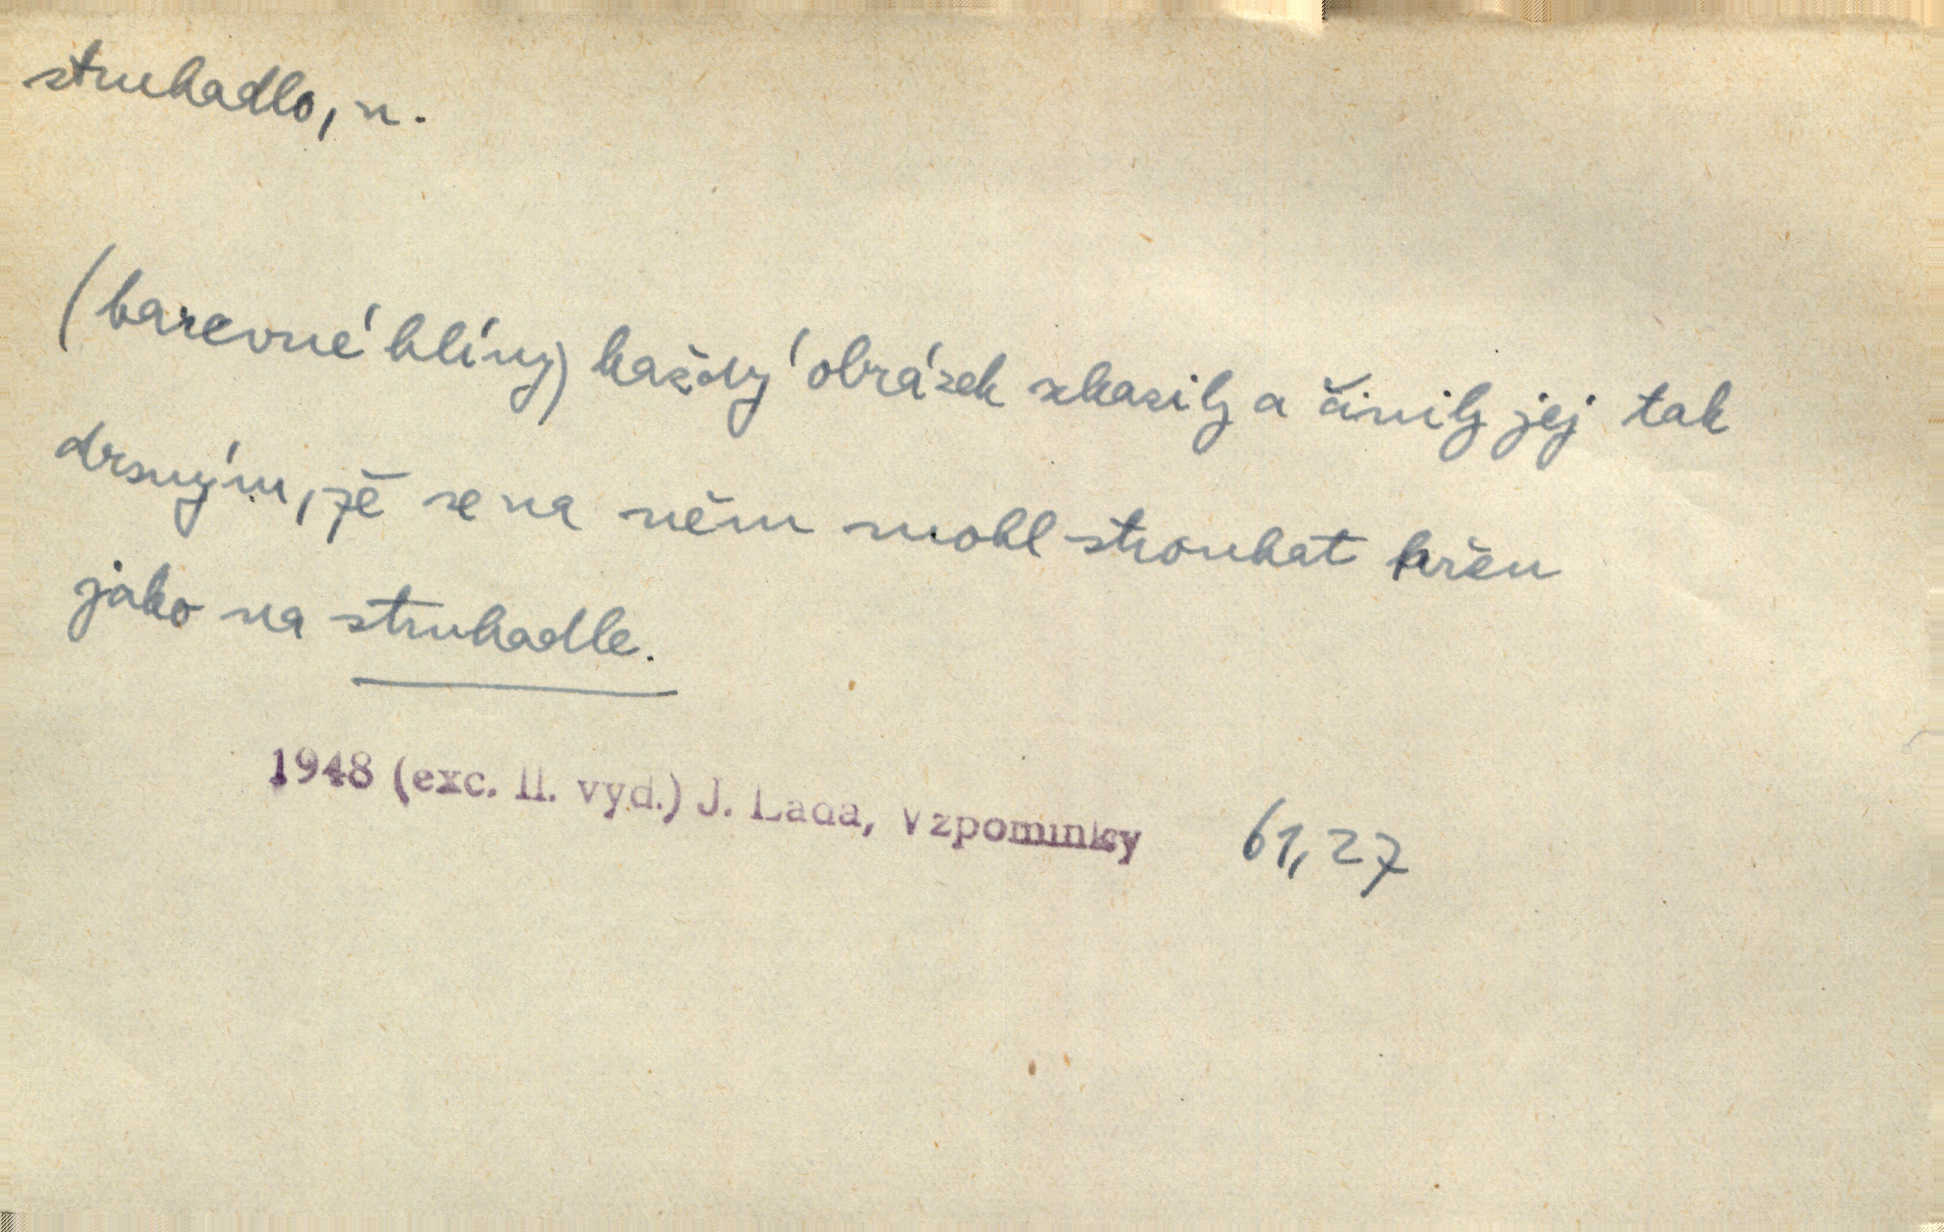 struhadlo, n.
(barevné hlíny) každý obrázek zkazily a činily jej tak
drsným, že se na něm mohl strouhat křen
jako na struhadle.
1948 (exc. II. vyd.) J. Lada, Vzpomínky 61, 27